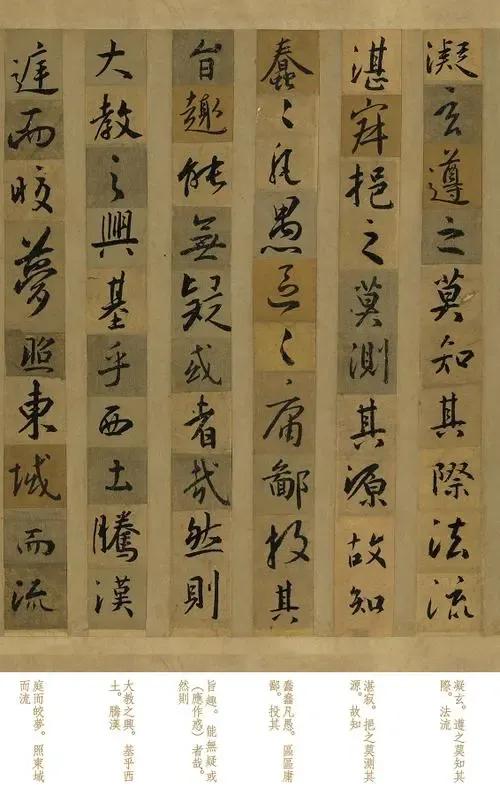 凝玄遵之莫知其際法流
湛寂挹之莫測其源故知
蠢々凡愚區々庸鄙投其
旨趣能無疑或者哉然則
大教之興基乎西土騰漢
庭而皎夢照東域而流
凝玄。遵之莫知其
際。法流
湛寂。挹之莫測其
源。故知
蠢蠢凡愚。區區庸
鄙。投其
旨趣。能無疑或
(應作惑)者哉。
然則
大教之興。基乎西
土。騰漢
庭而皎夢。照東域
而流